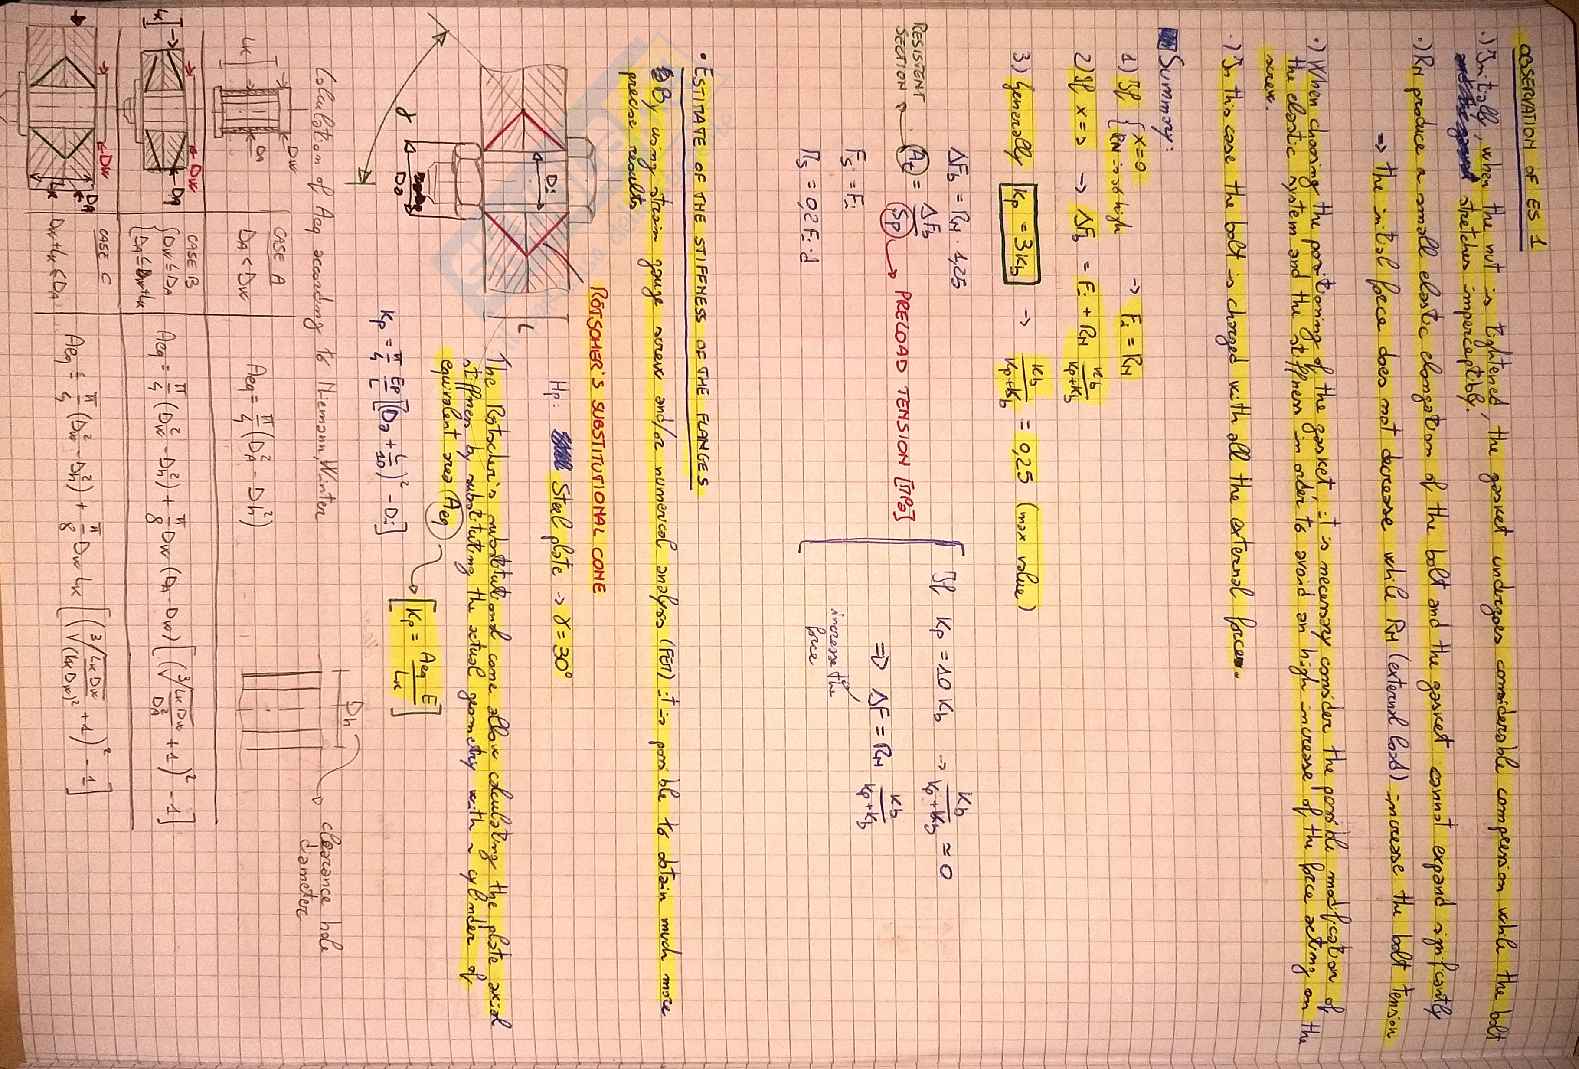 OBSERVATION OF ES 1
·) Initially, when the nut is tightened, the gasket undergoes considerable compression while the bolt
stretches imperceptibly.
·) RM produce a small elastic elongation of the bolt and the gasket cannot expand significantly
⇒ the initial force does not decrease while RM (external load) increase the bolt tension
·) When choosing the positioning of the gasket it is necessary consider the possible modification of
the elastic system and the stiffness in order to avoid an high increase of the force acting on the
screw.
·) In this case the bolt is charged with all the external forces.
Summary:
1) If { x=0
RM is high → Fi = RM
2) If x = → ΔFb = Fi + RM Kb/(Kp+Kb)
3) Generally Kp = 3Kb → Kb/(Kp+Kb) = 0,25 (max value)
ΔFb = RM · 1,25
RESISTENT
SECTION
At = ΔFb/Sp → PRELOAD TENSION [MPa]
Fs = Fi
Ms = 0,2 Fi · d
If Kp = 10 Kb → Kb/(Kp+Kb) ≈ 0
⇒ ΔF = RM Kb/(Kp+Kb)
increase the
force
• ESTITATE OF THE STIFFNESS OF THE FLANGES
By using strain gauge screws and/or numerical analysis (FET) it is possible to obtain much more
precise results
RÖTSCHER'S SUBSTITUTIONAL CONE
Hp: Steel plate → γ = 30°
Di
L
γ
D0
The Rotscher's substitutional cone allow calculating the plate axial
stiffness by substituting the actual geometry with a cylinder of
equivalent area (Aeq)
Kp = π/4 Ep/L [(D0 + L/10)² - Di²]
[Kp = Aeq E/Lk]
Calculation of Aeq according to Niemann, Winter
Dh
clearance hole
diameter
CASE A
DA < DW
Aeq = π/4 (DA² - Dh²)
CASE B
{ DW ≤ DA
DA ≤ DW+Lk
Aeq = π/4 (DW² - Dh²) + π/8 DW (DA - DW) [(∛(Lk DW/DA²) + 1)² - 1]
CASE C
DW+Lk < DA
Aeq = π/4 (DW² - Dh²) + π/8 DW Lk [(∛(Lk DW/(Lk+DW)²) + 1)² - 1]
Lk
DW
DA
Lk
DW
DA
Lk
DW
DA